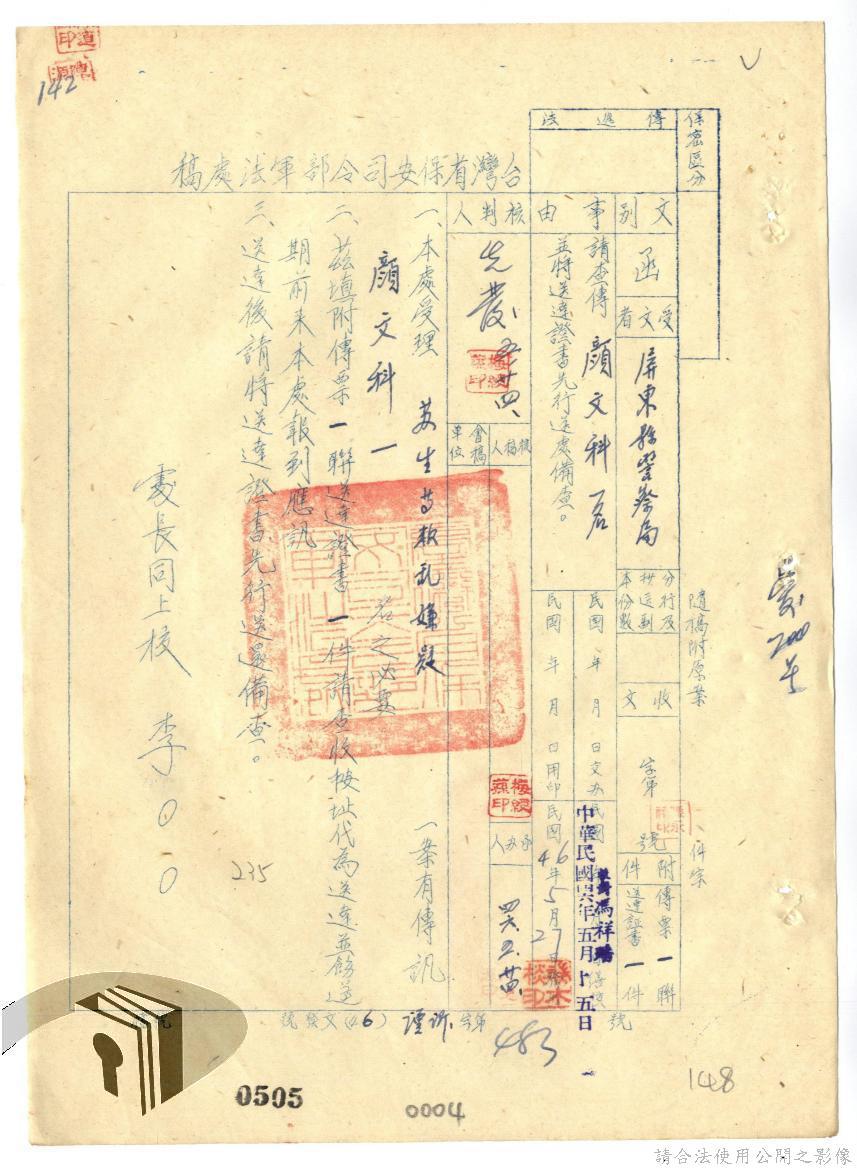 142
台灣省保安司令部軍法處稿
保密區分
傳遞法
文別
函
受文者
屏東縣警察局
事由
請查傳 顏文科一名
並將送達證書先行送處備查。
分行及抄送副本份數
收文
字第 號
附件
傳票一聯
送達証書一件
隨稿附原葉 件宗
民國 年 月 日交办
民國 年 月 日用印
中華民國四六年五月十五日
民國46年5月27日
馮祥
核判人
先發 五廿四
核稿人
會稿單位
承办人
梅綬蓀印
一、本處受理 蘇生等叛乱嫌疑 一案有傳訊
顏文科一 名之必要
二、茲填附傳票一聯送達證書一件請查收按址代為送達並飭送
期前來本處報到應訊
三、送達後請將送達證書先行送還備查。
處長同上校 李○○
235
號 字第 (46)發文 號
483
0505
0004
148
請合法使用公開之影像